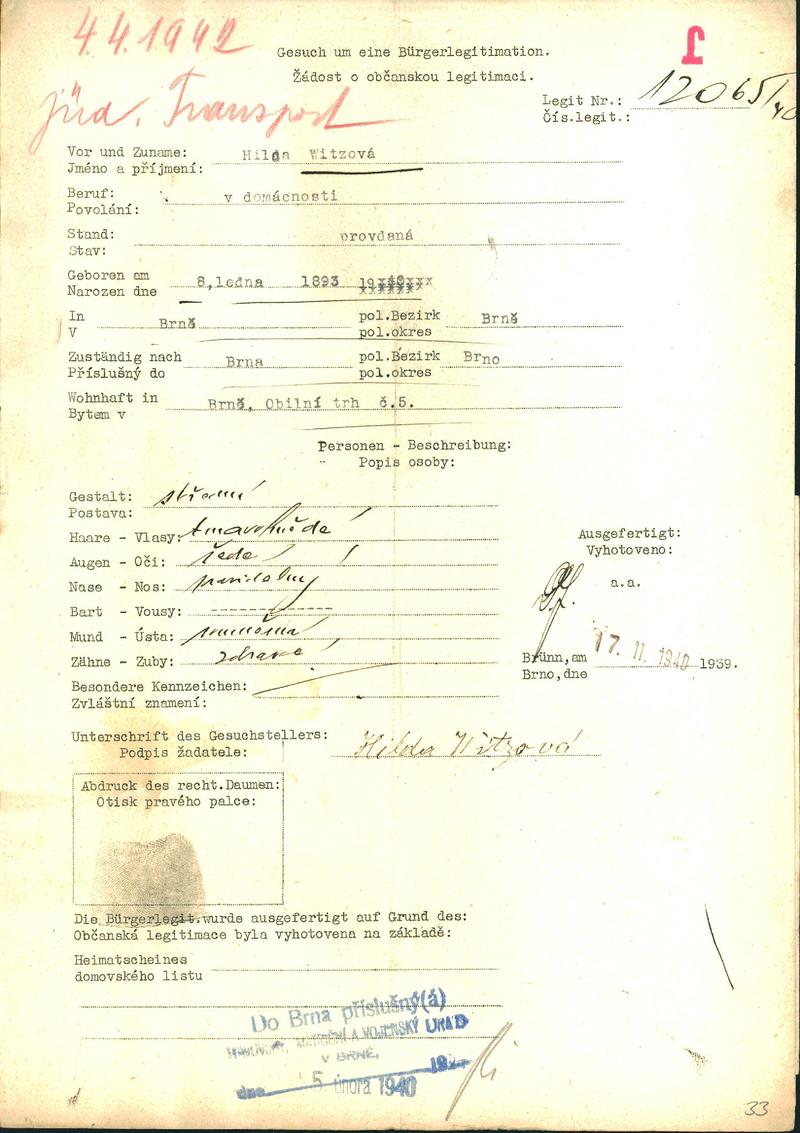 4.4.1942
Gesuch um eine Bürgerlegitimation.
Žádost o občanskou legitimaci.
J
jüd. Transport
Legit Nr.: 12065/40
Čís.legit.:
Vor und Zuname: Hilda Witzová
Jméno a příjmení:
Beruf: v domácnosti
Povolání:
Stand: provdaná
Stav:
Geboren am 8,ledna 1893
Narozen dne
In Brně pol.Bezirk Brně
V pol.okres
Zuständig nach Brna pol.Bezirk Brno
Příslušný do pol.okres
Wohnhaft in Brně, Obilní trh č.5.
Bytem v
Personen - Beschreibung:
Popis osoby:
Gestalt: střední
Postava:
Haare - Vlasy: tmavohnědé
Augen - Oči: šedé
Nase - Nos: pravidelný
Bart - Vousy: ------------
Mund - Ústa: souměrná
Zähne - Zuby: zdravé
Besondere Kennzeichen:
Zvláštní znamení:
Ausgefertigt:
Vyhotoveno:
a.a.
Brünn,am 17. II. 1940 1939.
Brno,dne
Unterschrift des Gesuchstellers:
Podpis žadatele: Hilda Witzová
Abdruck des recht.Daumen:
Otisk pravého palce:
Die Bürgerlegit.wurde ausgefertigt auf Grund des:
Občanská legitimace byla vyhotovena na základě:
Heimatscheines
domovského listu
Do Brna příslušný(á)
MATRIČNÍ A VOJENSKÝ ÚŘAD
V BRNĚ,
dne 5 února 1940
33